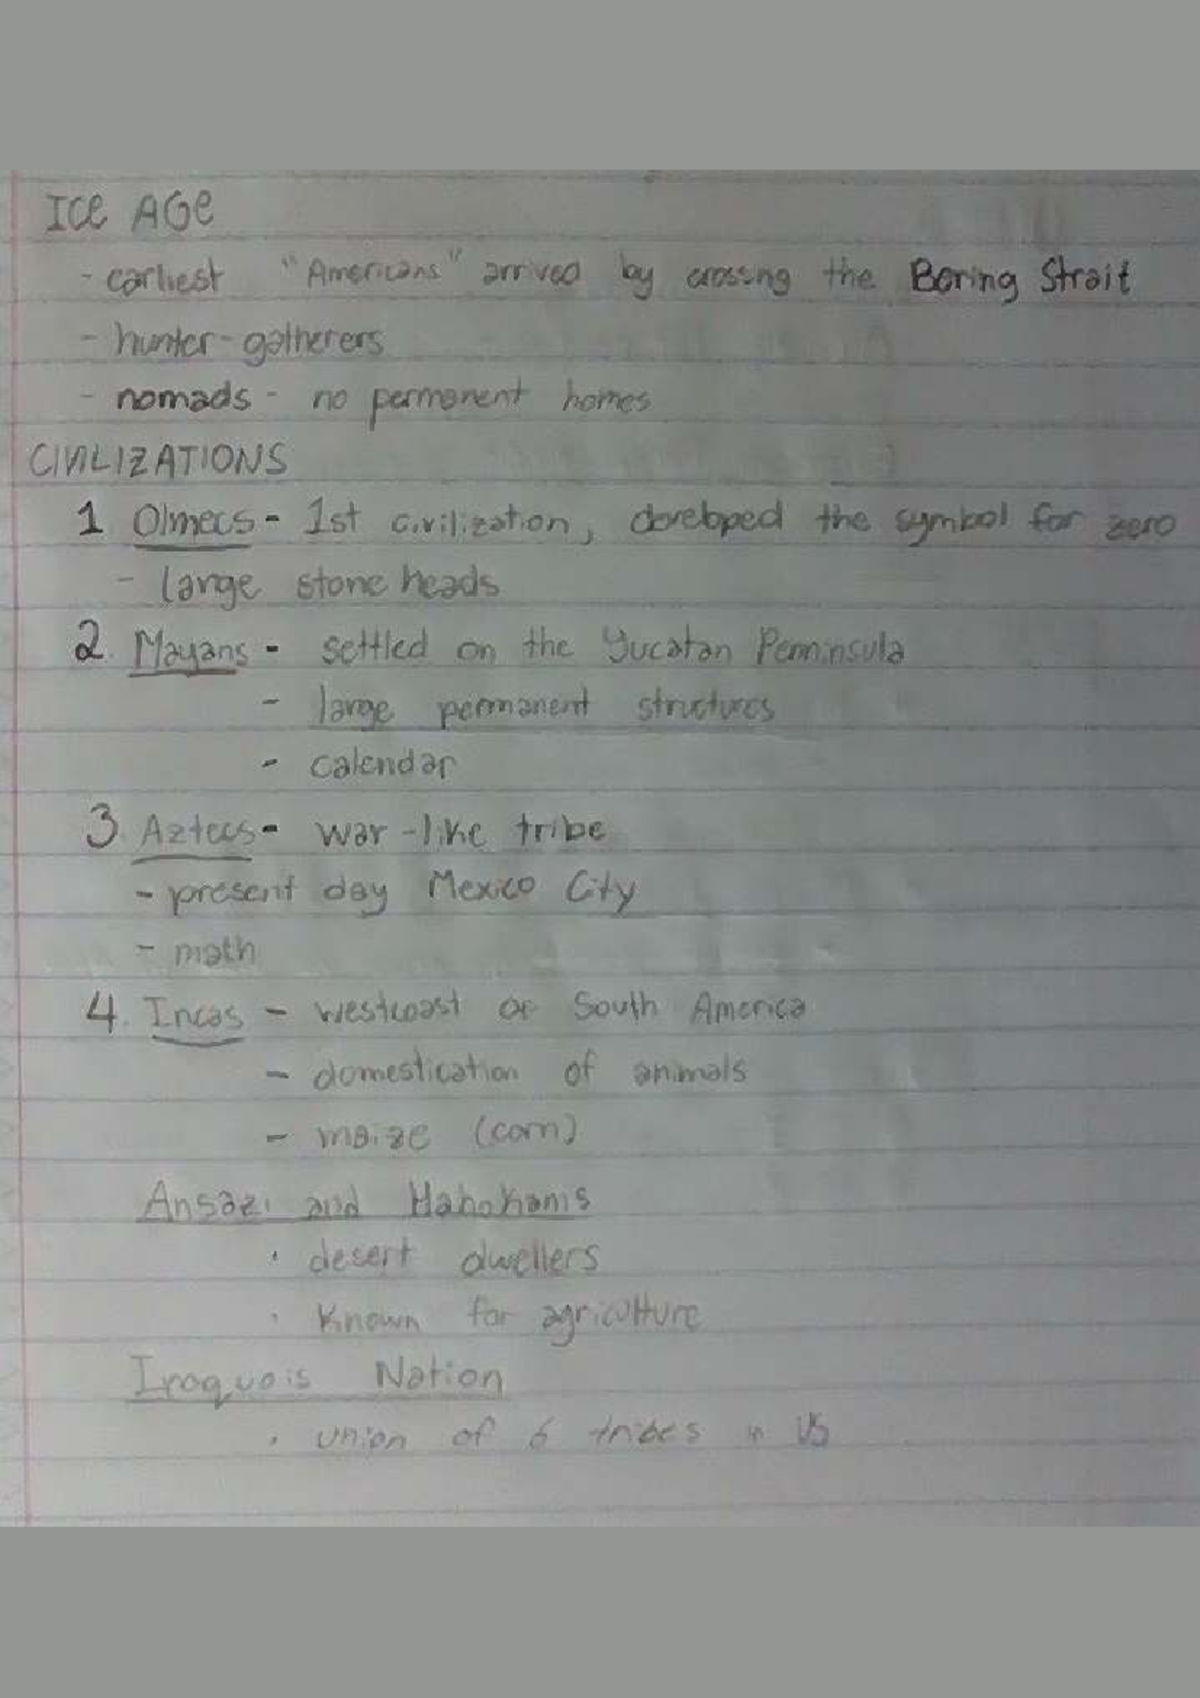 ICE AGE
- earliest "Americans" arrived by crossing the Bering Strait
- hunter-gatherers
- nomads - no permanent homes
CIVILIZATIONS
1 Olmecs - 1st civilization, developed the symbol for zero
- large stone heads
2. Mayans - settled on the Yucatan Penninsula
- large permanent structures
- calendar
3. Aztecs - war-like tribe
- present day Mexico City
- math
4. Incas - westcoast of South America
- domestication of animals
- maize (corn)
Ansazi and Hahokams
· desert dwellers
· Known for agriculture
Iroquois Nation
· union of 6 tribes in US